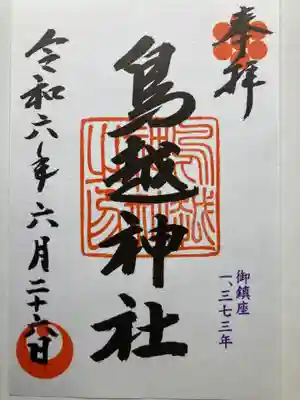 奉拝
御鎮座
一、三七三年
鳥越神社
令和六年六月二十六日